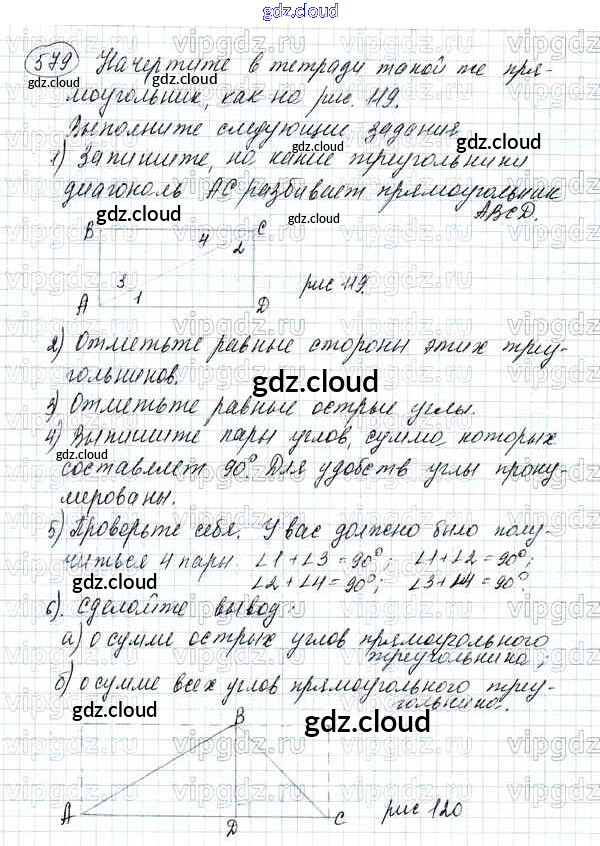 gdz.cloud
579 Начертите в тетради такой же пря-
моугольник, как на рис. 119.
Выполните следующие задания
1) Запишите, на какие треугольники
диагональ AC разбивает прямоугольник
ABCD.
B C
4 2
3
1
A D
рис 119.
2) Отметьте равные стороны этих треу-
гольников.
3) Отметьте равные острые углы.
4) Выпишите пары углов, сумма которых
составляет 90°. Для удобств углы прону-
мерованы.
5) Проверьте себя. У вас должно было полу-
читься 4 пары ∠1+∠3=90°; ∠1+∠2=90°;
∠2+∠4=90°; ∠3+∠4=90°.
6). Сделайте вывод:
а) о сумме острых углов прямоугольного
треугольника;
б) о сумме всех углов прямоугольного треу-
гольника.
B
A D C
рис 120
gdz.cloud
vipgdz.ru